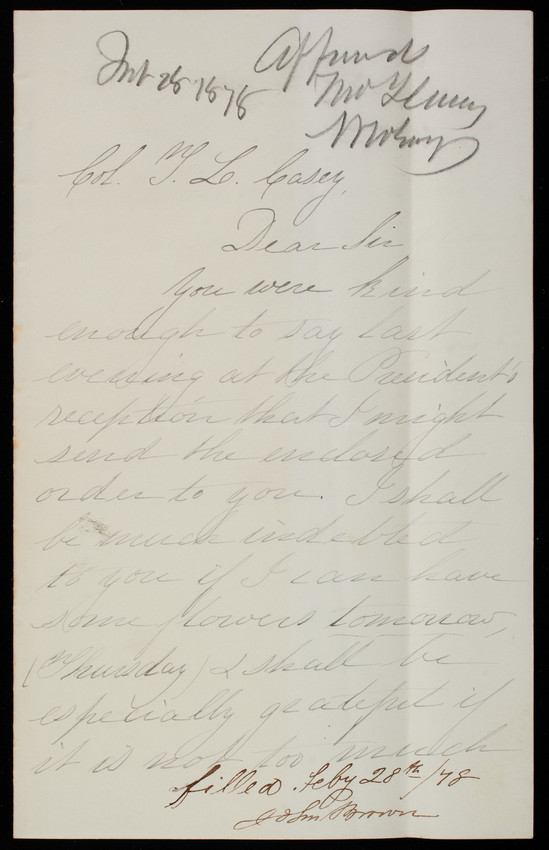 Feb 28 1878
Col. T. L. Casey,
Dear Sir
You were kind
enough to say last
evening at the President's
reception that I might
send the enclosed
order to you. I shall
be much indebted
to you if I can have
some flowers tomorrow,
(Thursday) & shall be
especially grateful if
it is not too much
filled. Feby 28th/78
John Brown